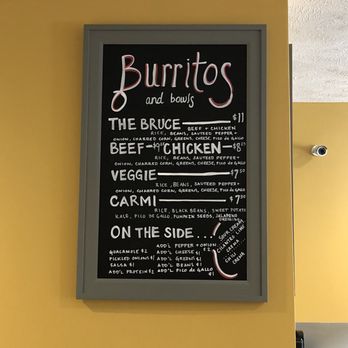 Burritos
and bowls
THE BRUCE $11
BEEF + CHICKEN
RICE, BEANS, SAUTEED PEPPER +
ONION, CHARRED CORN, GREENS, CHEESE, PICO DE GALLO
BEEF CHICKEN
RICE, BEANS, SAUTEED PEPPER +
ONION, CHARRED CORN, GREENS, CHEESE, PICO DE GALLO
VEGGIE $7.50
RICE, BEANS, SAUTEED PEPPER +
ONION, CHARRED CORN, GREENS, CHEESE, PICO DE GALLO
CARMI
RICE, BLACK BEANS, SWEET POTATO
KALE, PICO DE GALLO, PUMPKIN SEEDS, JALAPENO
ON THE SIDE...
SOUR CREAM
CILANTRO LIME
CREMA
CHILI
CREMA
GUACAMOLE $2
PICKLED ONIONS $1
SALSA $1
ADD'L PROTEIN
ADD'L PEPPER + ONION
ADD'L CHEESE
ADD'L GREENS $1
ADD'L BEANS $1
ADD'L PICO DE GALLO